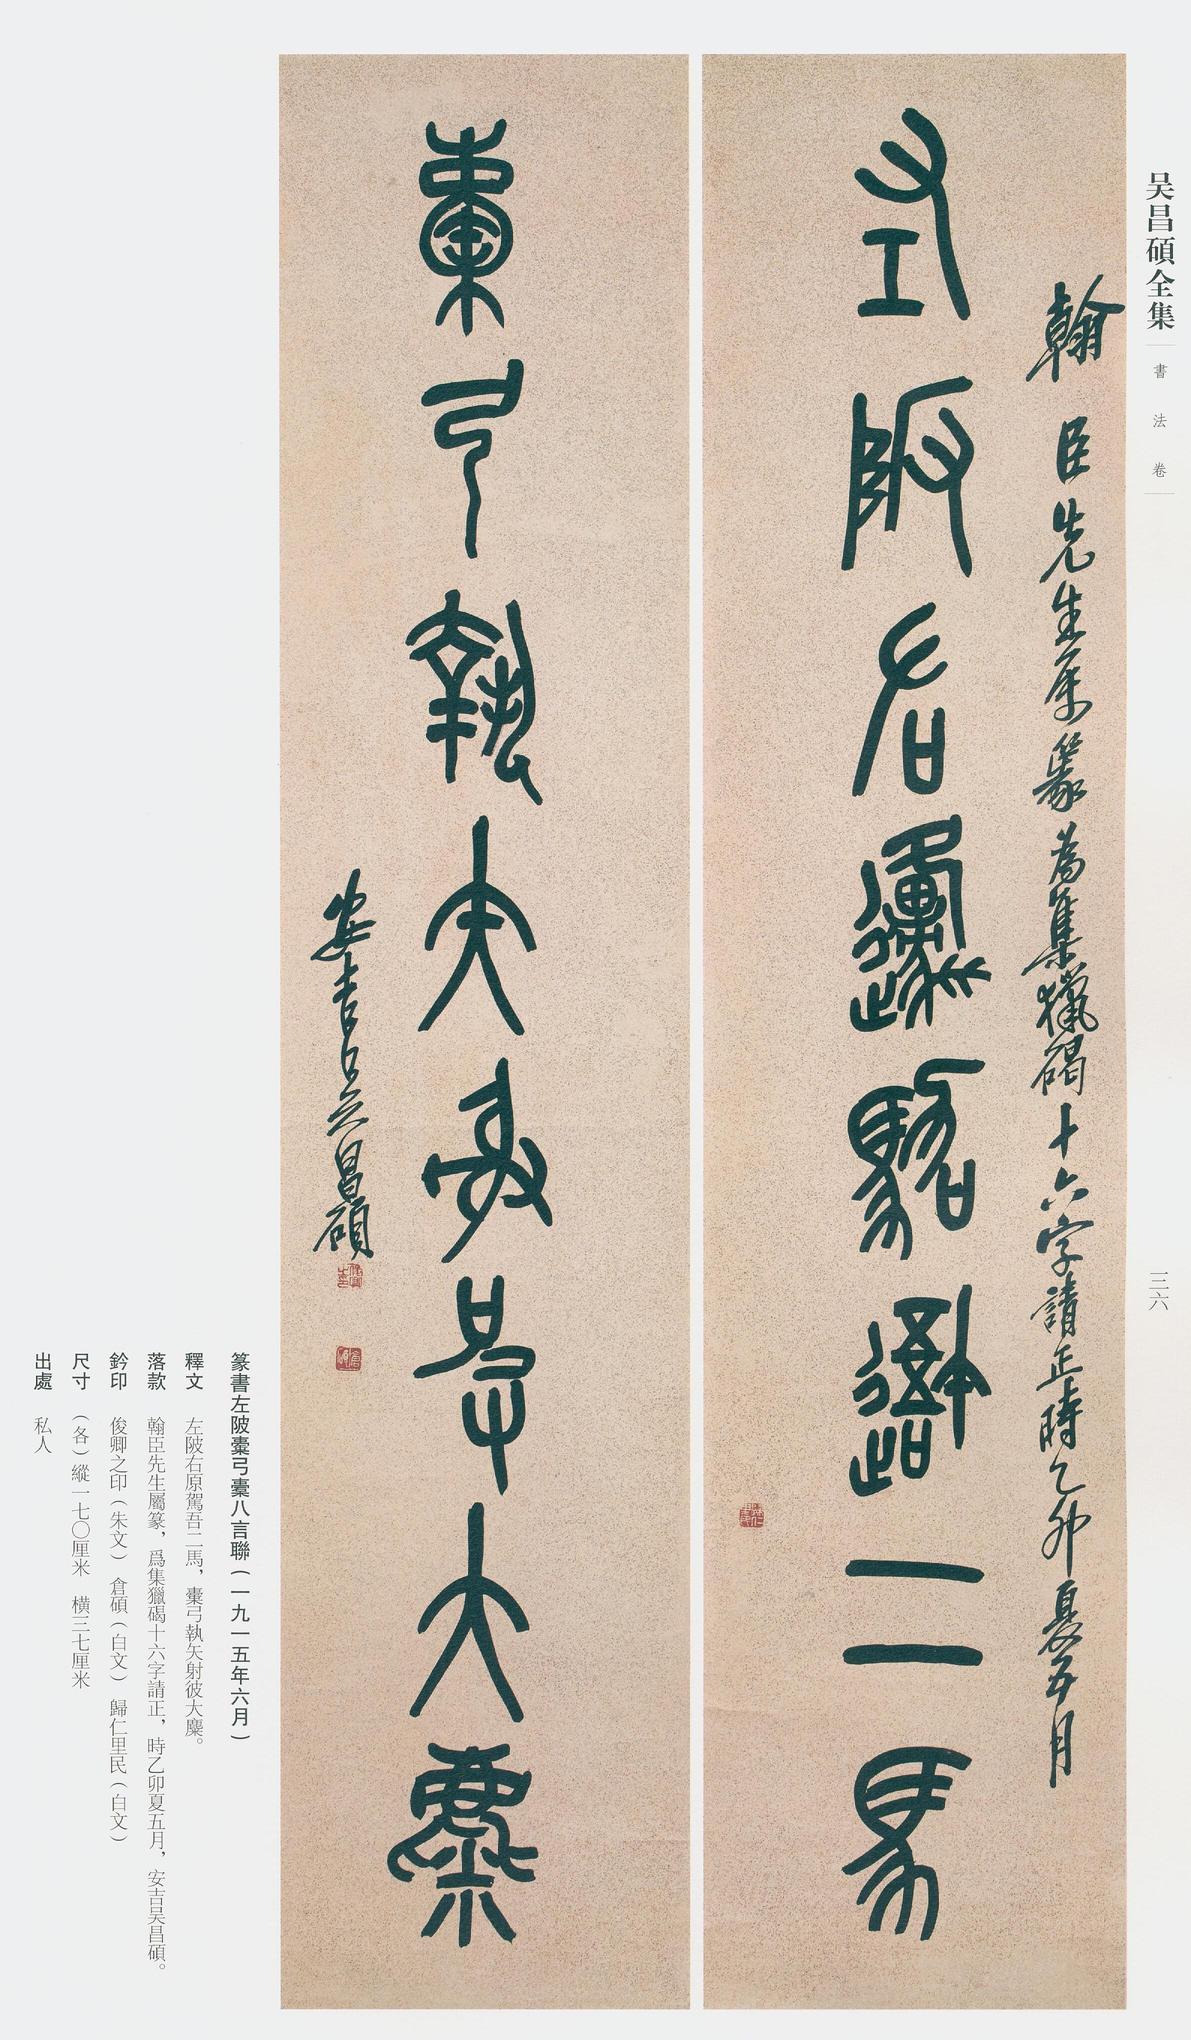 吴昌碩全集
書法卷
三六
翰臣先生属篆為集獵碣十六字請正時乙卯夏五月
左陂右邍駕𨖸二馬
橐弓執矢射彼大麋
安吉吴昌碩
篆書左陂橐弓橐八言聯(一九一五年六月)
釋文 左陂右原駕吾二馬,橐弓執矢射彼大麋。
落款 翰臣先生屬篆,爲集獵碣十六字請正,時乙卯夏五月,安吉吴昌碩。
鈐印 俊卿之印(朱文) 倉碩(白文) 歸仁里民(白文)
尺寸 (各)縱一七〇厘米 横三七厘米
出處 私人